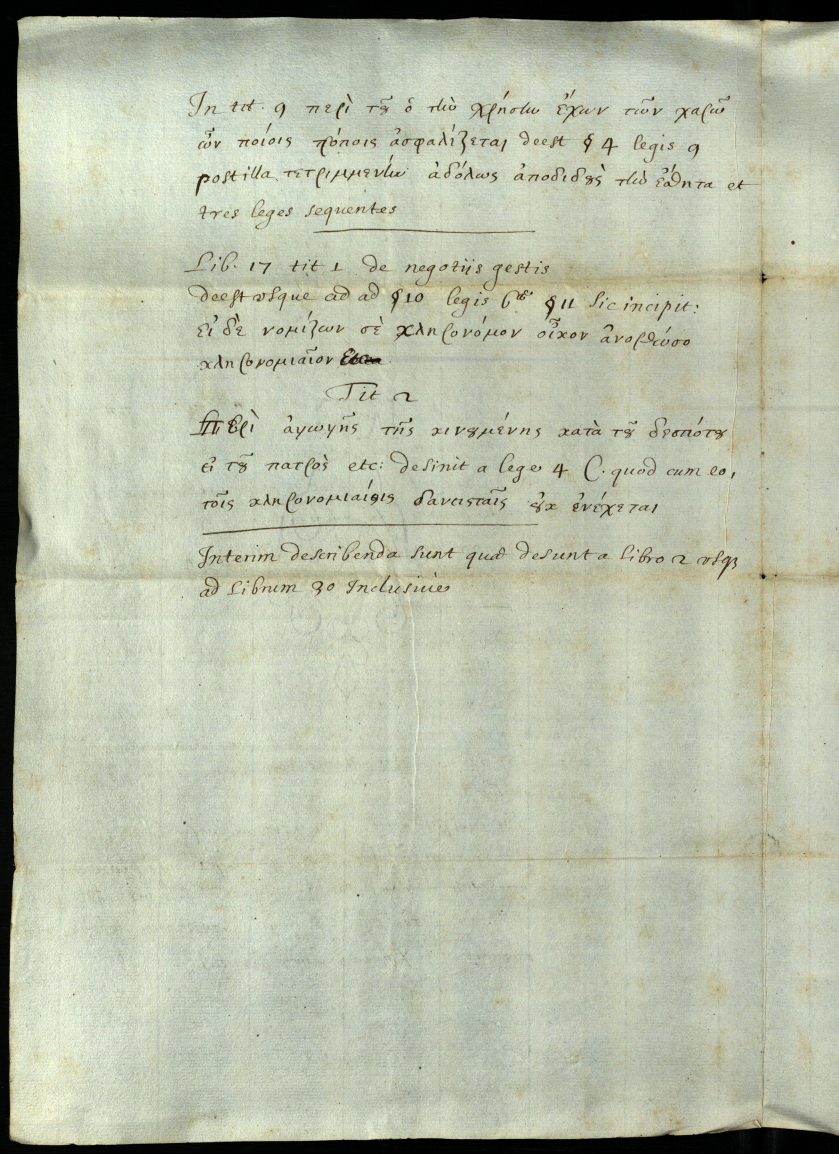 In tit. 9 περὶ τοῦ ὁ τὴν χρήσιν ἔχων τῶν καρπ
ῶν ποίοις τρόποις ἀσφαλίζεται deest § 4 legis 9
post illa τετριμμενὴν ἀδόλως ἀποδιδοὺς τὴν ἐσθητα et
tres leges sequentes
Lib. 17 tit 1 de negotijs gestis
deest vsque ad ad § 10 legis 6tæ § 11 sic incipit:
εἰ δὲ νομίζων σὲ κληρονόμον οἶκον ἀνορθώσο
κληρονομιαῖον
Tit 2
Περὶ ἀγωγῆς τῆς κινουμένης κατὰ τοῦ δεσπότου
εἰ τοῦ πατρὸς etc: desinit a lege 4 C. quod cum eo,
τοῖς κληρονομιαίοις δανεισταῖς οὐκ ἐνέχεται
Interim describenda sunt quæ desunt a Libro 2 vsq3
ad Librum 30 Inclusiue